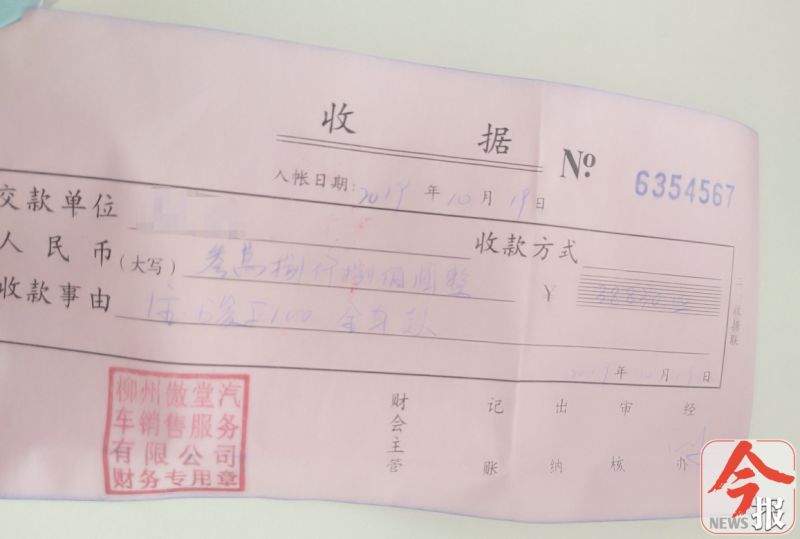 收 据 № 6354567
入帐日期: 2019 年 10 月 19 日
交款单位 收款方式
人民币(大写) 叁萬捌仟捌佰圆整 ¥
收款事由
二、收据联
2019 年 10 月 19 日
财会主管 记账 出纳 审核 经办
柳州傲堂汽
车销售服务
有限公司
财务专用章
今报
NEWS